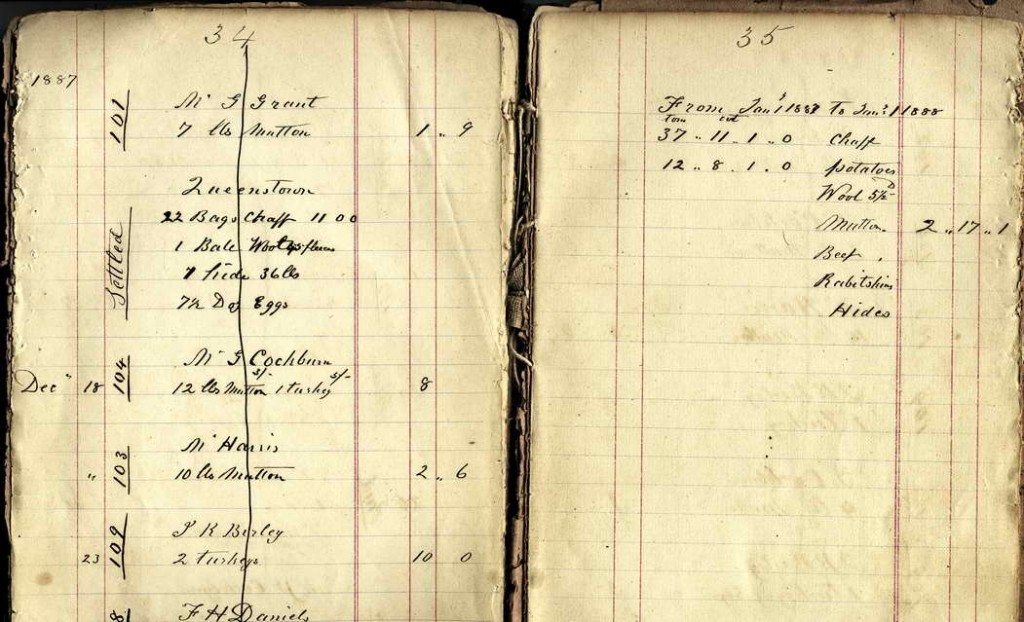 34
1887
101 Mr G Grant
7 lbs Mutton 1 .. 9
Queenstown
22 Bags Chaff 11 0 0
Settled
1 Bale Wool
1 hide 36 lbs
7½ Doz Eggs
104 Mr G Cochburn
Dec " 18 12 lbs Mutton 3/- 1 turkey 5/- 8
Mr Harris
" 103 10 lbs Mutton 2 .. 6
109 J K Berley
23 2 turkeys 10 0
8 F H Daniels
35
From Jany 1 1887 to Jany 1 1888
tom cwt
37 .. 11 .. 1 .. 0 Chaff
12 .. 8 .. 1 .. 0 potatoes
Wool 5½D
Mutton 2 .. 17 .. 1
Beef
Rabitskins
Hides